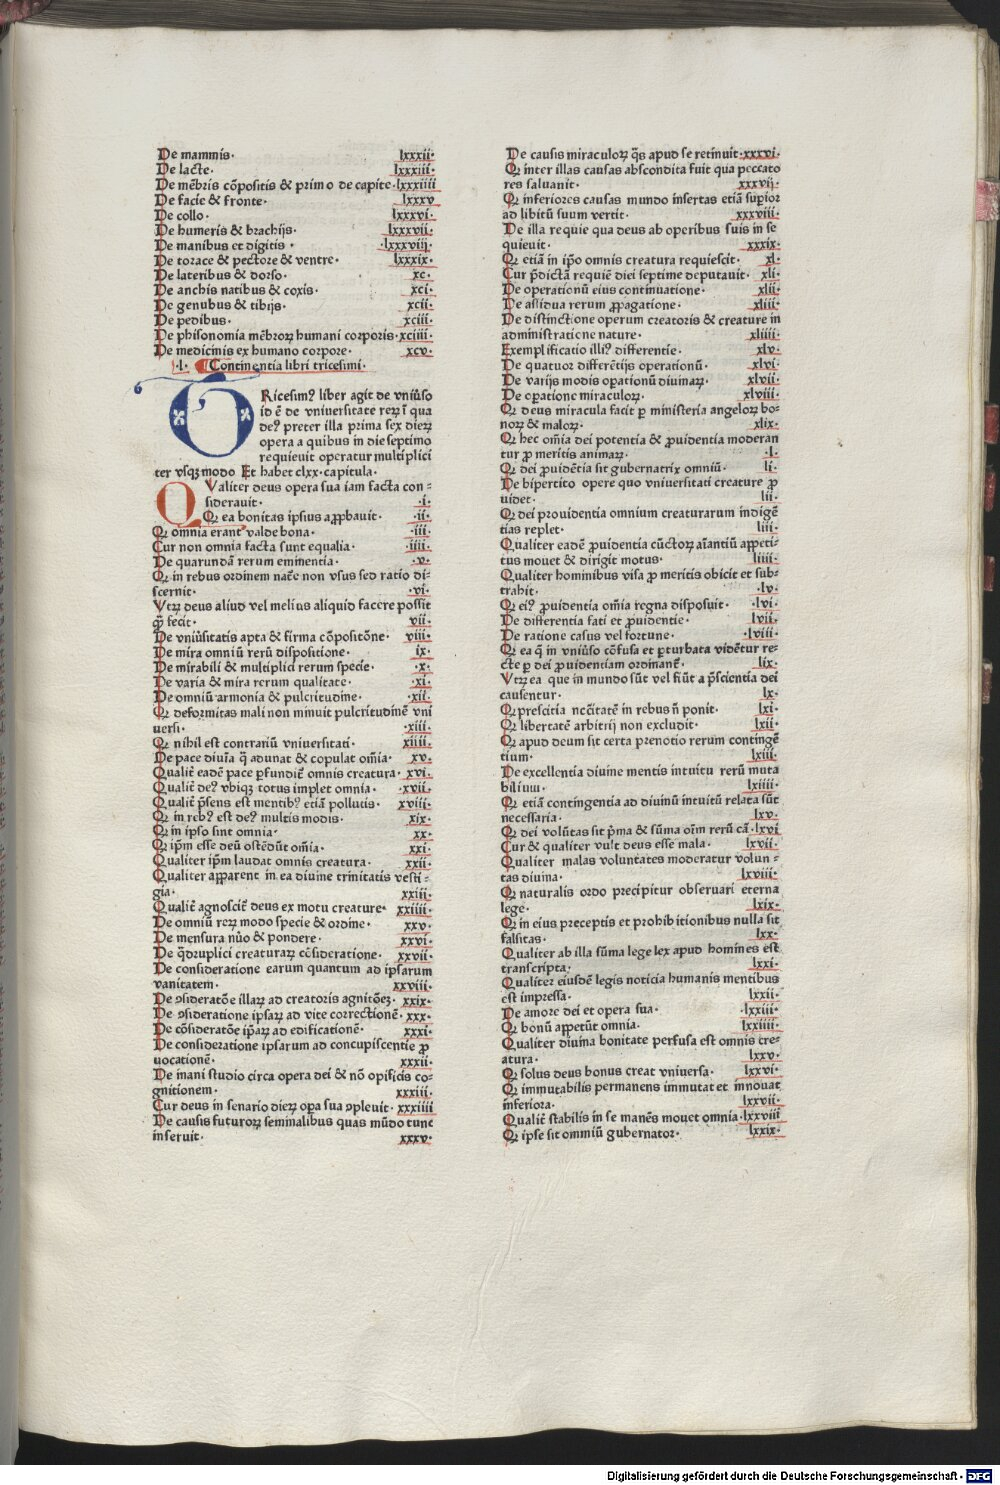 De mammis· lxxxii·
De lacte· lxxxiii·
De mēbris cōpositis & primo de capite· lxxxiiii
De facie & fronte· lxxxv
De collo· lxxxvi·
De humeris & brachijs· lxxxvii·
De manibus et digitis· ·lxxxviij·
De torace & pectore & ventre· lxxxix·
De lateribus & dorso· xc·
De anchis natibus & coxis· xci·
De genubus & tibijs· xcii·
De pedibus· xciii·
De phisonomia mēbroꝝ humani corporis· xciiii·
De medicinis ex humano corpore· xcv·
·l· Continentia libri tricesimi·
TRicesimꝰ liber agit de vniūso
id ē de vniuersitate reꝝ ī qua
deꝰ preter illa prima sex dieꝝ
opera a quibus in die septimo
requieuit operatur multiplici
ter vsqꝫ modo Et habet clxx·capitula·
QValiter deus opera sua iam facta con-
siderauit· ·i·
Qꝛ ea bonitas ipsius aꝓpbauit· ·ii·
Qꝛ omnia erant valde bona· ·iii·
Cur non omnia facta sunt equalia· ·iiii·
De quarundā rerum eminentia· ·v·
Qꝛ in rebus ordinem nat̄e non vsus sed ratio di-
scernit· ·vi·
Vtꝝ deus aliud vel melius aliquid facere possit
ꝙ̄ fecit· vii·
De vniūsitatis apta & firma cōpositōne· viii·
De mira omniū rerū dispositione· ix·
De mirabili & multiplici rerum specie· ·x·
De varia & mira rerum qualitate· ·xi·
De omniū armonia & pulcritudine· ·xii·
Qꝛ deformitas mali non minuit pulcritudinē vni
uersi· ·xiii·
Qꝛ nihil est contrariū vniuersitati· xiiii·
De pace diuīa q̄ adunat & copulat om̄ia· xv·
Qualiť eadē pace ꝑfundiť omnis creatura· xvi·
Qualiť deꝰ vbiqꝫ totus implet omnia· ·xvii·
Qualiť p̄sens est mentibꝰ etiā pollutis· xviii·
Qꝛ in rebꝰ est deꝰ multis modis· xix·
Qꝛ in ipso sint omnia· xx·
Qꝛ ip̄m esse deū ostēdūt om̄ia· xxi·
Qualiter ip̄m laudat omnis creatura· xxii·
Qualiter apparent in ea diuine trinitatis vesti-
gia· xxiii·
Qualiť agnosciť deus ex motu creature· xxiiii·
De omniū reꝝ modo specie & ordine· xxv·
De mensura nūo & pondere· xxvi·
De q̄druplici creaturaꝝ cōsideratione· xxvii·
De consideratione earum quantum ad ipsarum
vanitatem· xxviii·
De ꝯsideratōe illaꝝ ad creatoris agnitōeꝫ· xxix·
De ꝯsideratione ipsaꝝ ad vite correctionē· xxx·
De cōsideratōe ip̄aꝝ ad edificationē· xxxi·
De consideratione ipsarum ad concupiscentie ꝓ
uocationē· xxxii·
De inani studio circa opera dei & nō opificis co-
gnitionem· xxxiii·
Cur deus in senario dieꝝ oꝑa sua ꝯpleuit· xxxiiii
De causis futuroꝝ seminalibus quas mūdo tunc
inseruit· xxxv·
De causis miraculoꝝ q̄s apud se retinuit·xxxvi·
Qꝛ inter illas causas abscondita fuit qua peccato
res saluanit· xxxvij·
Qꝛ inferiores causas mundo insertas etiā suꝑior
ad libitū suum vertit· xxxviii·
De illa requie qua deus ab operibus suis in se
quieuit· xxxix·
Qꝛ etiā in ip̄o omnis creatura requiescit· xl·
Cur p̄dictā requiē diei septime deputauit· xli·
De operationū eius continuatione· xlii·
De assidua rerum ꝓpagatione· xliii·
De distinctione operum creatoris & creature in
administratione nature· xliiii·
Exemplificatio illiꝰ differentie· xlv·
De quatuor differētijs operationū· xlvi·
De varijs modis oꝑationū diuinaꝝ· xlvii·
De oꝑatione miraculoꝝ· xlviii·
Qꝛ deus miracula facit ꝑ ministeria angeloꝝ bo-
noꝝ & maloꝝ· xlix·
Qꝛ hec om̄ia dei potentia & ꝓuidentia moderan
tur ꝓ meritis animaꝝ· ·l·
Qꝛ dei ꝓuidētia sit gubernatrix omniū· li·
De bipertito opere quo vniuersitati creature ꝓ
uidet· lii·
Qꝛ dei prouidentia omnium creaturarum indigē
tias replet· liii·
Qualiter eadē ꝓuidentia cūctoꝝ aīantiū appeti-
tus mouet & dirigit motus· liiii·
Qualiter hominibus visa ꝓ meritis obicit et sub-
trahit· ·lv·
Qꝛ eiꝰ ꝓuidentia om̄ia regna disposuit· ·lvi·
De differentia fati et ꝓuidentie· lvii·
De ratione casus vel fortune· ·lviii·
Qꝛ ea q̄ in vniūso cōfusa et ꝑturbata vidētur re-
cte ꝑ dei ꝓuidentiam ordinanť· lix·
Vtꝝ ea que in mundo sūt vel fiūt a p̄scientia dei
causentur· lx·
Qꝛ prescitia nc̄itatē in rebus n̄ ponit· lxi·
Qꝛ libertatē arbitrij non excludit· lxii·
Qꝛ apud deum sit certa prenotio rerum contingē
tium· lxiii·
De excellentia diuine mentis intuitu rerū muta
bilium· lxiiii·
Qꝛ etiā contingentia ad diuinū intuitū relata sūt
necessaria· lxv·
Qꝛ dei volūtas sit p̄ma & sūma oīm rerū cā· lxvi
Cur & qualiter vult deus esse mala· lxvii·
Qualiter malas voluntates moderatur volun-
tas diuina· lxviii·
Qꝛ naturalis ordo precipitur obseruari eterna
lege· lxix·
Qꝛ in eius preceptis et prohibitionibus nulla sit
falsitas· lxx·
Qualiter ab illa sūma lege lex apud homines est
transcripta· lxxi·
Qualiter eiusdē legis noticia humanis mentibus
est impressa· lxxii·
De amore dei et opera sua· ·lxxiii·
Qꝛ bonū appetūt omnia· lxxiiii·
Qualiter diuina bonitate perfusa est omnis cre-
atura· lxxv·
Qꝛ solus deus bonus creat vniuersa· lxxvi·
Qꝛ immutabilis permanens immutat et innouat
inferiora· lxxvii·
Qualiť stabilis in se manēs mouet omnia·lxxviii
Qꝛ ipse sit omniū gubernator· lxxix·
Digitalisierung gefördert durch die Deutsche Forschungsgemeinschaft - DFG